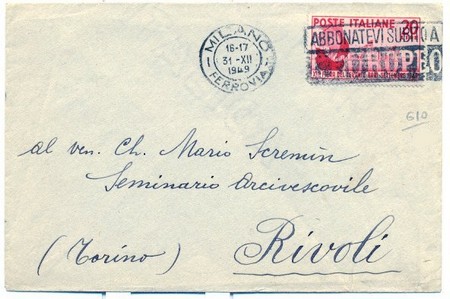 MILANO
16-17
31-XII
1949
FERROVIA
POSTE ITALIANE
20
ABBONATEVI SUBITO A
610
Al ven. Ch. Mario Scremin
Seminario Arcivescovile
Rivoli
(Torino)